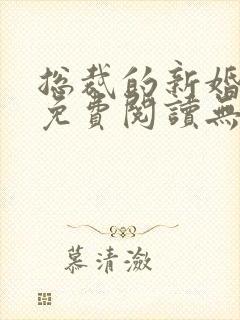 总裁的新婚
免費閱讀無
慕清潋